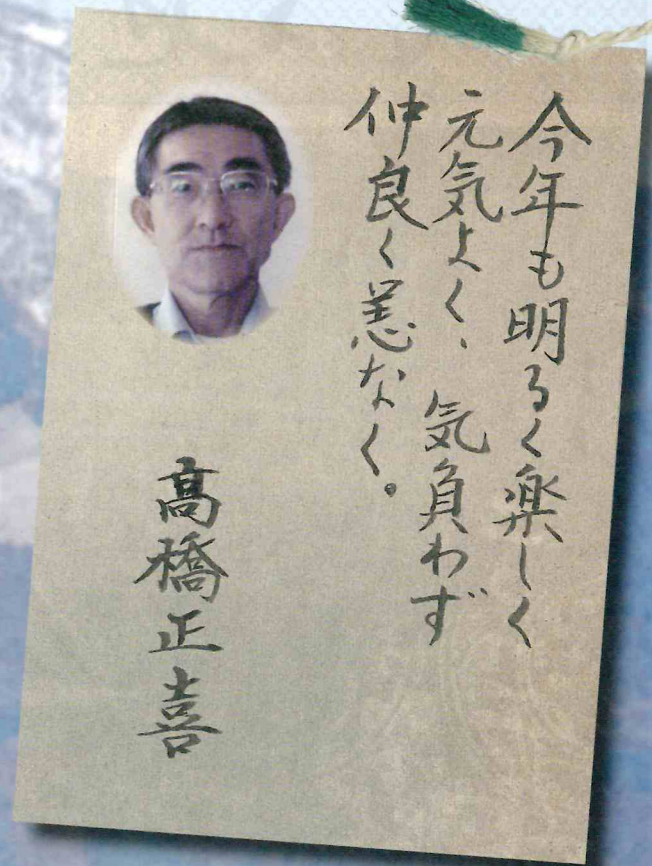 今年も明るく楽しく
元気よく、気負わず
仲良く恙なく。
髙橋正喜